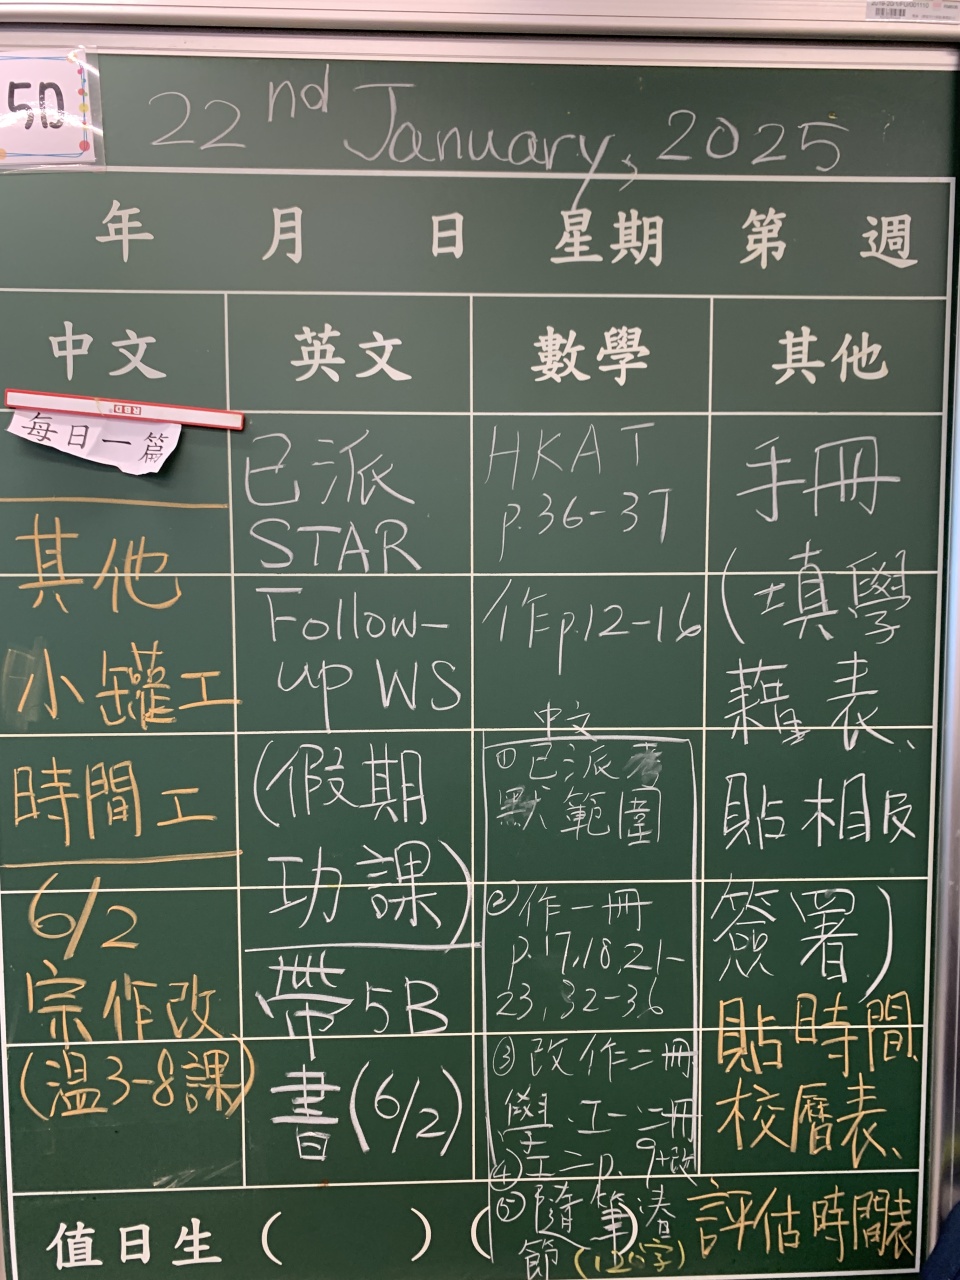 5D
22nd January, 2025
年 月 日 星期 第 週
中文
每日一篇
其他
小罐工
時間工
6/2
宗作改
(溫3-8課)
英文
已派
STAR
Follow-
up WS
(假期
功課)
帶5B
書(6/2)
數學
HKAT
p.36-37
作p.12-16
中文
①已派考
默範圍
②作一冊
p.17,18,21-
23,32-36
③改作二冊
學.工一.二冊
④工二p.9+改
⑤隨筆
節(120字)
其他
手冊
(填學
藉表、
貼相片
簽署)
貼時間、
校曆表、
評估時間表
值日生( )(